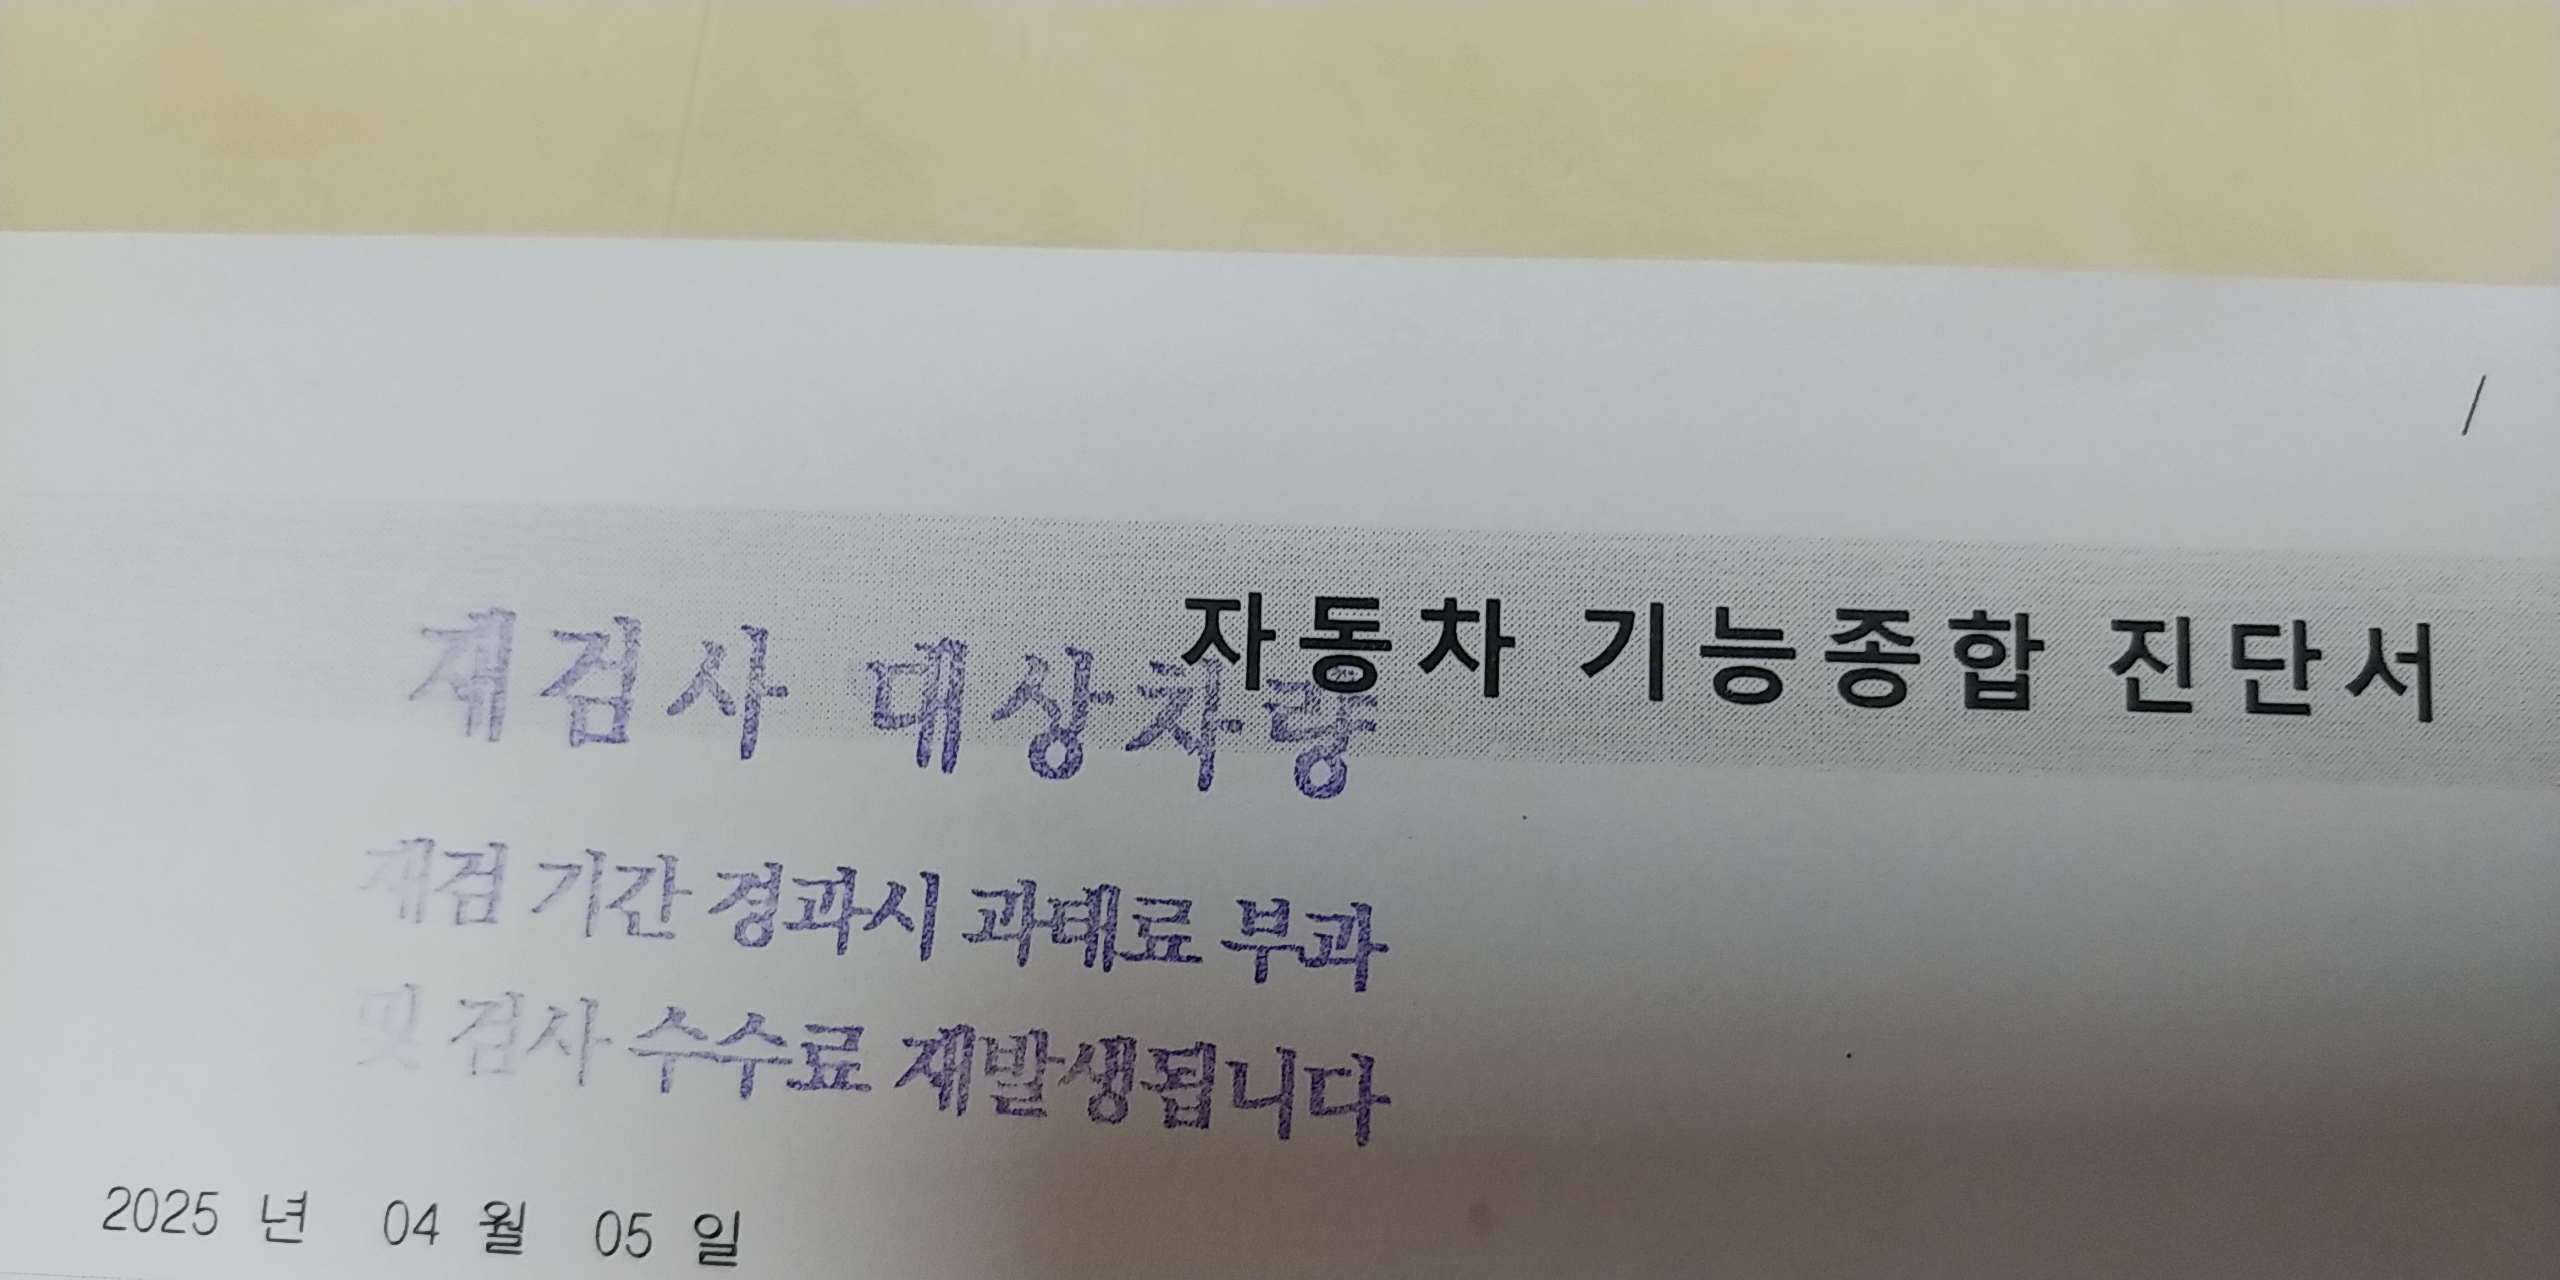 /
자동차 기능종합 진단서
재검사 대상차량
재검 기간 경과시 과태료 부과
및 검사 수수료 재발생됩니다
2025 년 04 월 05 일